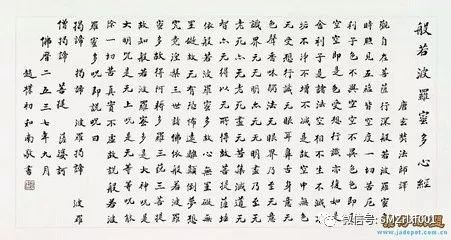 般若波羅蜜多心經
唐玄奘法師譯
觀自在菩薩行深般若波羅蜜多
時照見五蘊皆空度一切苦厄舍
利子色不異空空不異色色即是
空空即是色受想行識亦復如是
舍利子是諸法空相不生不滅不
垢不淨不增不減是故空中無色
无受想行識无眼耳鼻舌身意无
色聲香味觸法无眼界乃至无意
識界无无明亦无无明盡乃至无
老死亦无老死盡无苦集滅道无
智亦无得以无所得故菩提薩埵
依般若波羅蜜多故心无罣礙无
罣礙故无有恐怖遠離顛倒夢想
究竟涅槃三世諸佛依般若波羅
蜜多故得阿耨多羅三藐三菩提
故知般若波羅蜜多是大神咒是
大明咒是无上咒是无等等咒能
除一切苦真實不虛故說般若波
羅蜜多咒即說咒曰
揭諦 揭諦 波羅
揭諦 波羅
僧揭諦 菩提 薩婆訶
佛曆二五三七年九月
趙樸初和南敬書
微信号:
www.jadepot.com.cn